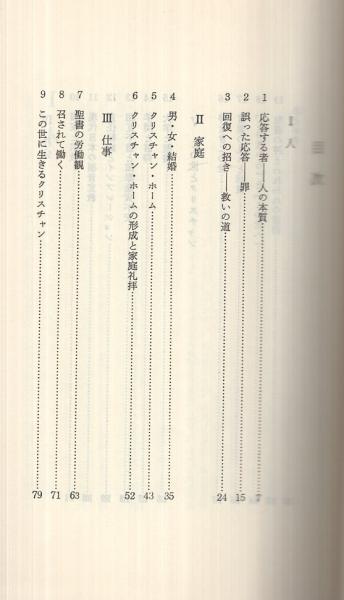 目次
I 人
1 応答する者——人の本質……7
2 誤った応答——罪……15
3 回復への招き——救いの道……24
II 家庭
4 男・女・結婚……35
5 クリスチャン・ホーム……43
6 クリスチャン・ホームの形成と家庭礼拝……52
III 仕事
7 聖書の労働観……63
8 召されて働く……71
9 この世に生きるクリスチャン……79